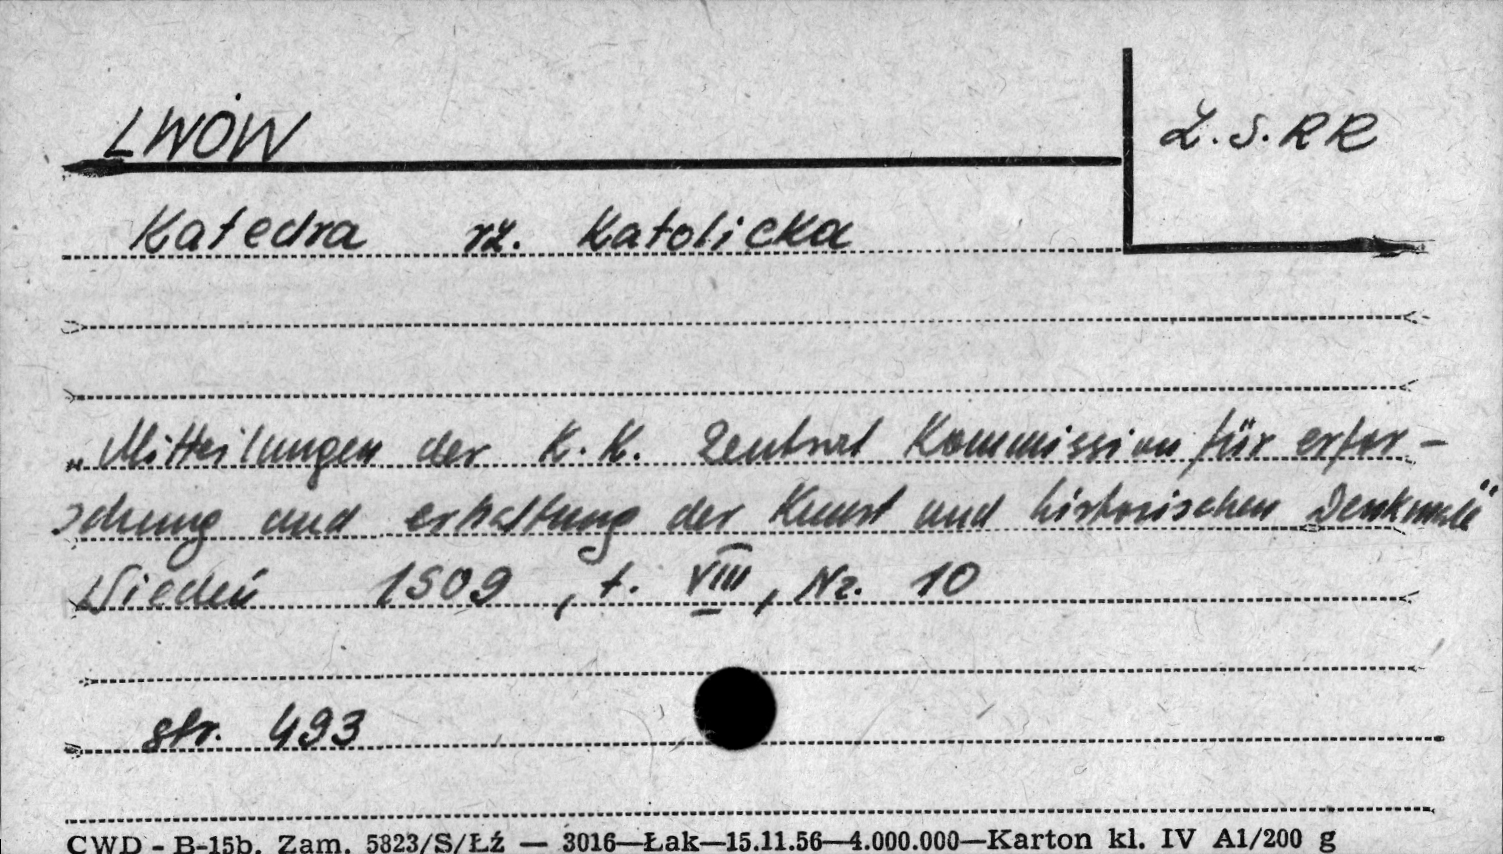 LWÓW
Ż.S.RR
Katedra rz. Katolicka
„Mitteilungen der K.K. Zentral Kommission für erfor-
schung und erhaltung der Kunst und historischen Denkmale"
Wiedeń 1909, t. VIII, Nr. 10
str. 493
CWD - B-15b. Zam. 5823/S/Łź — 3016—Łak—15.11.56—4.000.000—Karton kl. IV A1/200 g